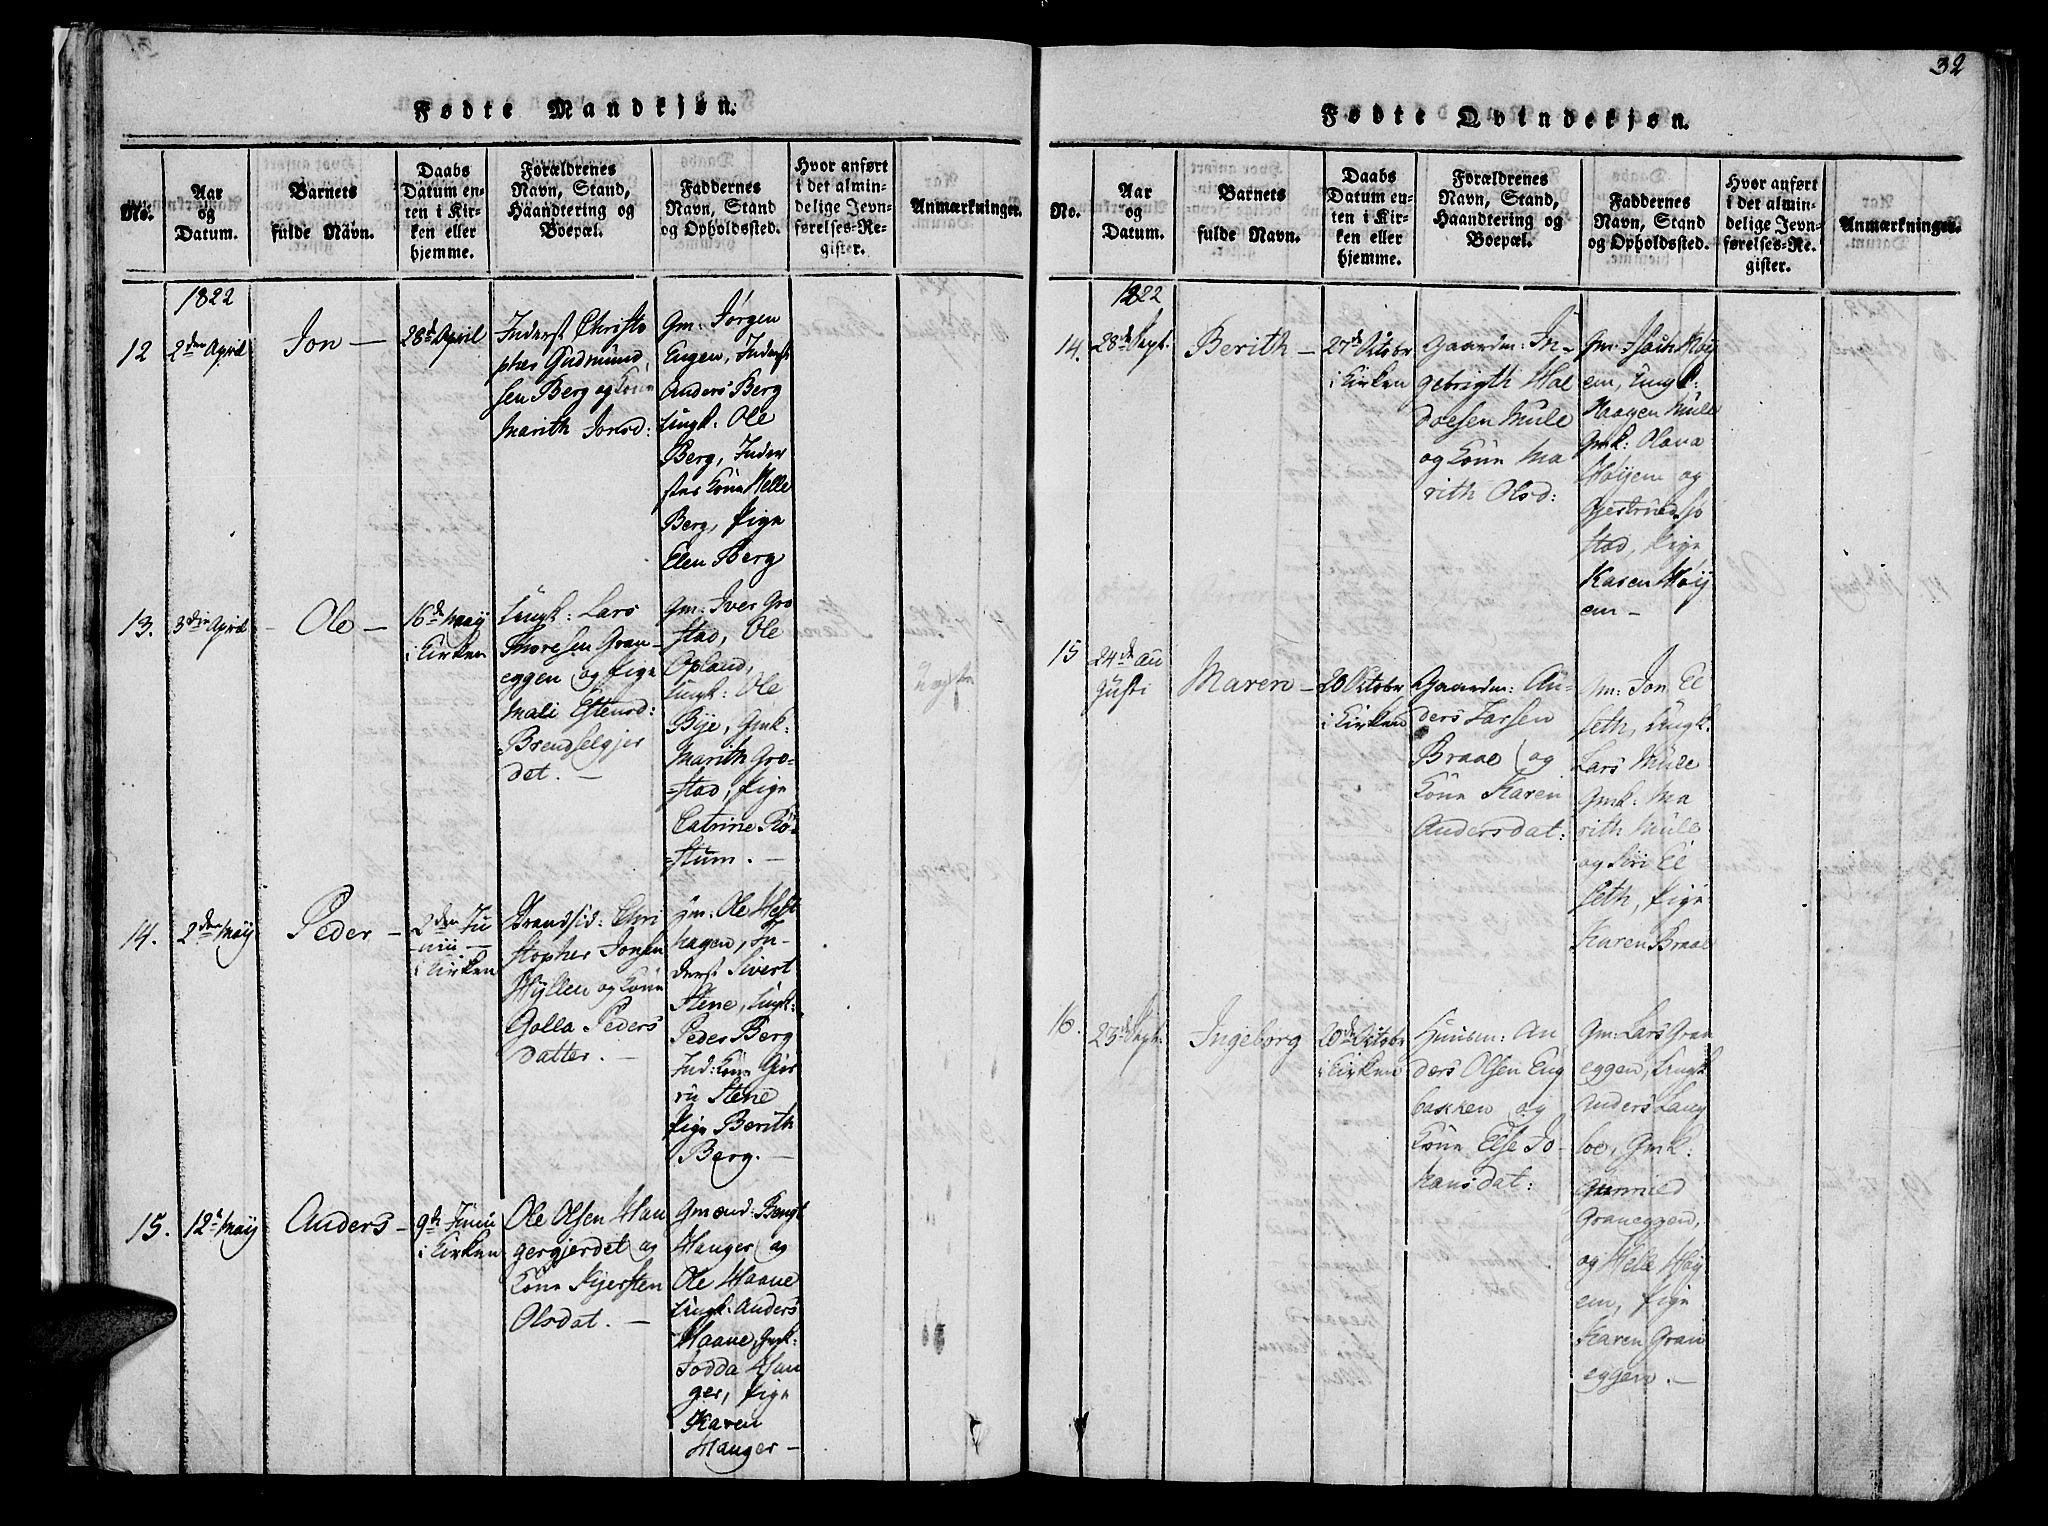 32
Fødte Mandkjøn.
No.
Aar
og
Datum.
Barnets
fulde Navn.
Daabs
Datum en-
ten i Kir-
ken eller
hjemme.
Forældrenes
Navn, Stand,
Haandtering og
Boepæl.
Faddernes
Navn, Stand
og Opholdssted.
Hvor anført
i det almin-
delige Jevn-
førelses-Re-
gister.
Anmærkninger.
1822
12
2den April
Jon —
28d April
Inderst Christo
pher Gudmund
sen Berg og Kone
Marith Jonsd:
Gm: Jørgen
Eugen, Inderst
Anders Berg
Ungk. Ole
Berg, Inder
stes Kone Helle
Berg, Pige
Elen Berg
13.
3die April
— Ole —
16de Maij
i Kirken
Ungk: Lars
Thoresen Gran-
eggen og Pige
Mali Estensd:
Brendselgjer
det. —
Gm: Iver Gro
stad, Ole
Opland,
Ungk: Ole
Bye, Gmk:
Marith Gro-
=stad, Pige
Catrine Rø-
=stum. —
14.
2den Maij
Peder —
2den Ju
nii —
i Kirken
Strandsid: Chri
stopher Jonsen
Hyllen og Kone
Golla Peders
datter. —
Gm: Ole Hest
hagen, In-
derst Sivert
Stene, Ungk:
Peder Berg
Ind: Kone Gur
ru Stene
Pige Berith
Berg. —
15.
12t Maij
Anders —
9de Junii
i Kirken
Ole Olsen Hau
gergjerdet og
Kone Kjersten
Olsdat. —
Gmænd: Bengt
Hauger og
Ole Haave
Ungk: Anders
Haave, Gmk:
Todda Hau
ger, Pige
Karen
Hauger —
Fødte Qvindekjøn.
No.
Aar
og
Datum.
Barnets
fulde Navn.
Daabs
Datum en-
ten i Kir-
ken eller
hjemme.
Forældrenes
Navn, Stand,
Haandtering og
Boepæl.
Faddernes
Navn, Stand
og Opholdssted.
Hvor anført
i det almin-
delige Jevn-
førelses-Re-
gister.
Anmærkninger.
1822
14.
28de Sept.
Berith —
27de Octobr
i Kirken
Gaardm: In-
gebrigth Hal
dosen Mule
og Kone Ma
rith Olsd:
Gm: Isach Høy
em, Ungk:
Haagen Mule
Gmk: Olava
Høyem og
Gjertrued
stad, Pige
Karen Høij
em —
15
24de Au
gusti
Maren —
20 Octobr
i Kirken
Gaardm: An-
ders Larsen
Braae og
Kone Karen
Andersdat:
Gm: Jon El
seth, Ungk:
Lars Mule
Gmk: Ma
rith Mule
og Siri El
seth, Pige
Karen Braae
16.
23de Sept:
Ingeborg
20de Octobr
i Kirken
Huusm: An
ders Olsen Eng
bakken og
Kone Else Jo-
hansdat:
Gm: Lars Gran
eggen, Ungk
Anders Lang
loe, Gmk:
Gunnild
Graneggen,
og Helle Høy
em, Pige
Karen Gran
eggen. —